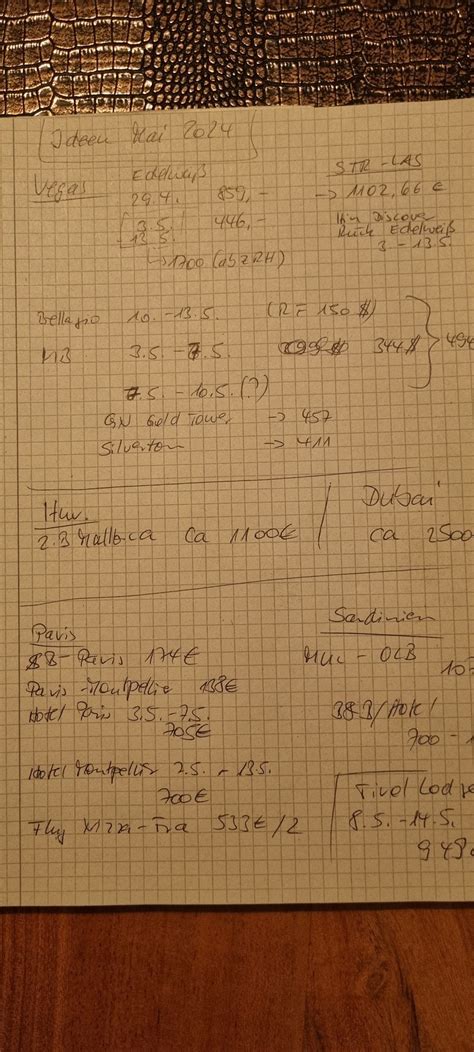 Ideen Mai 2024
Vegas Edelweiß
29.4. 859,-
3.5. 446,-
13.5.
↳ 1700 (ab ZRH)
STR-LAS
→ 1102,66 €
Hin Discover
Rück Edelweiß
3-13.5.
Bellagio 10.-13.5. (RF 150 $)
MB 3.5.-7.5. 344$ } 494
7.5.-10.5. (?)
GN Gold Tower → 457
Silverton → 411
z.B Mallorca ca 1100€
Dubai
ca 2500
Paris
Paris 174€
Paris-Montpellier 138€
Hotel Paris 3.5.-7.5.
705€
Hotel Montpellier 7.5.-13.5.
700€
Flug Fra 533€/2
Sardinien
Muc-OLB
/Hotel
700-1
Tirol Lodge
8.5.-14.5.